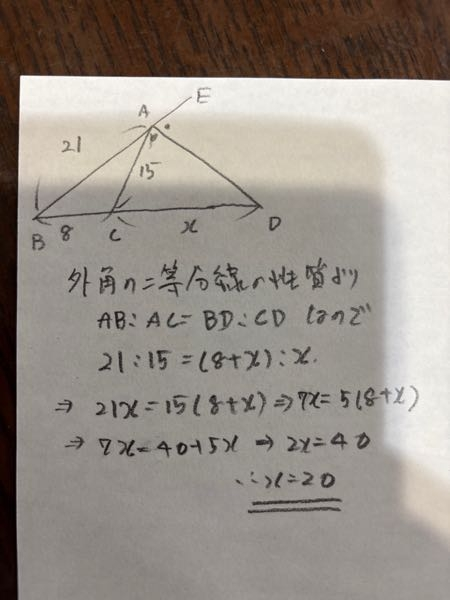 A E
21 15
B 8 C x D
外角の二等分線の性質より
AB:AC=BD:CD なので
21:15=(8+x):x.
⇒ 21x=15(8+x)⇒7x=5(8+x)
⇒ 7x=40+5x ⇒ 2x=40
∴x=20